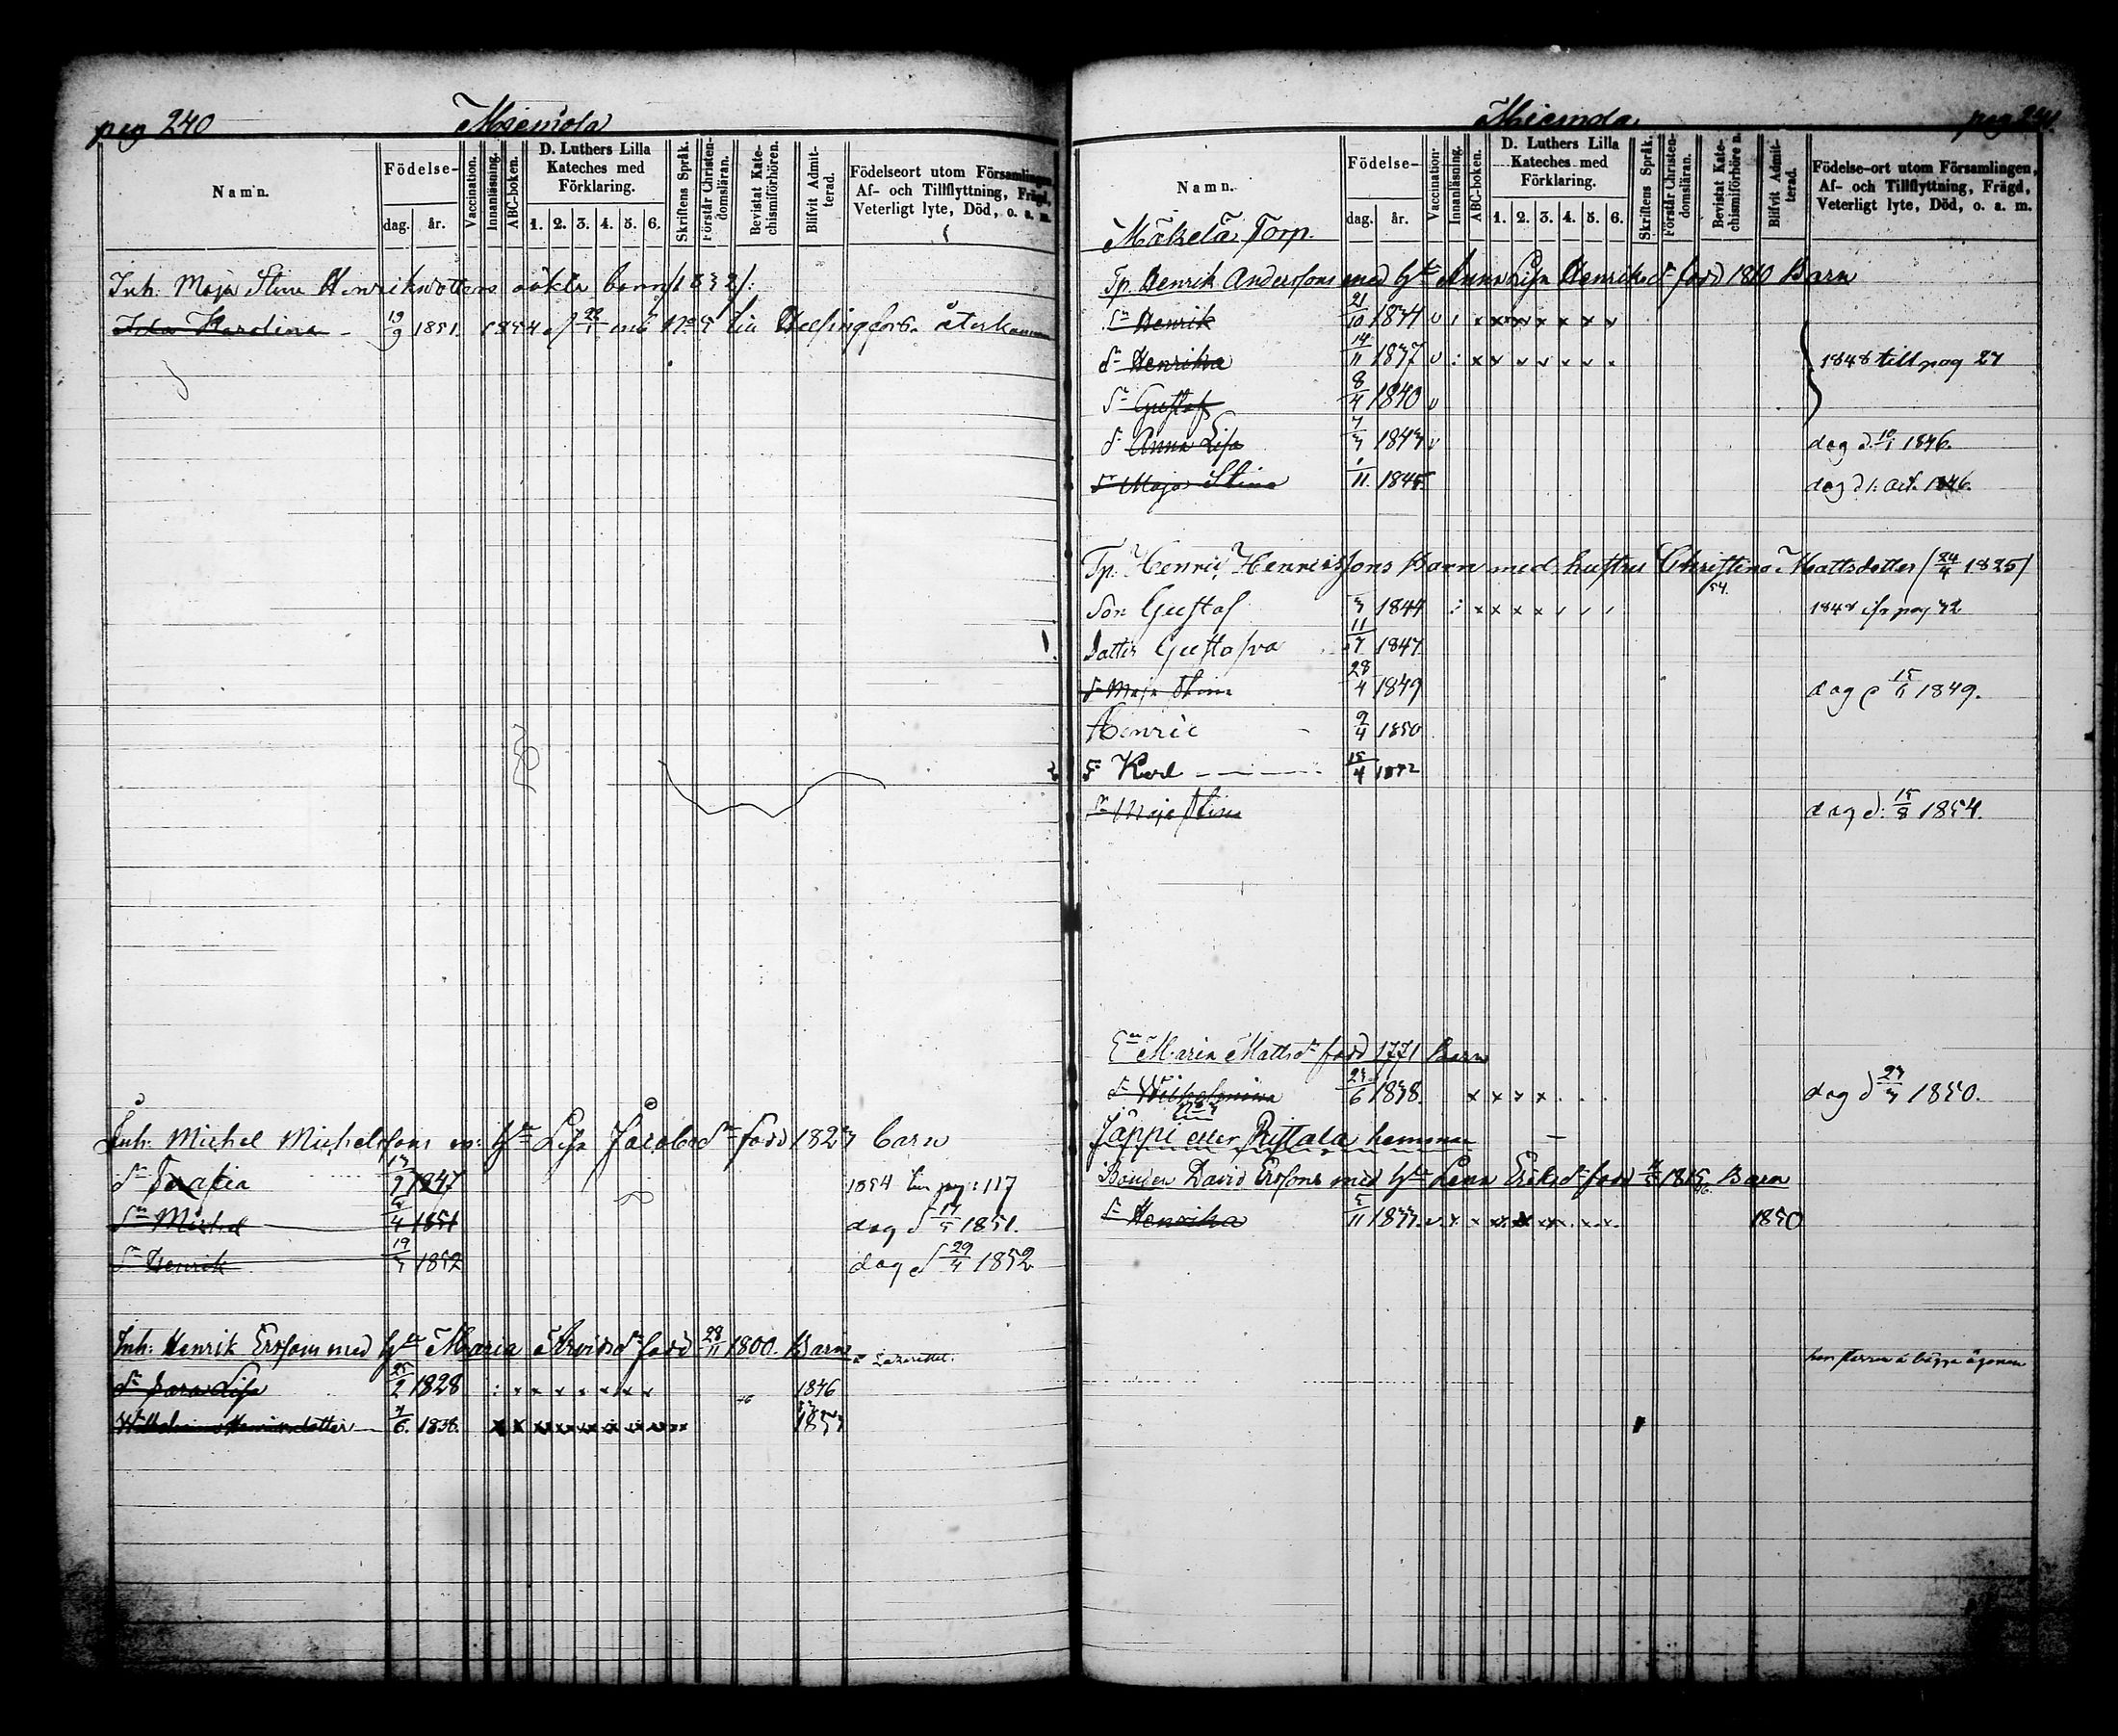 pag 240
Miemola
Namn.
Födelse-
dag.
år.
Vaccination.
Innanläsning.
ABC-boken.
D. Luthers Lilla Kateches med Förklaring.
1. 2. 3. 4. 5. 6.
Skriftens Språk.
Förstår Christen-domsläran.
Bevistat Kate-chismiförhören.
Blifvit Admit-terad.
Födelseort utom Församlingen,
Af- och Tillflyttning, Frägd,
Veterligt lyte, Död, o. a. m.
Inh. Maja Stina Henriksdotters oäkta barn /1832/:
Ida Karolina 19/9 1851. 1854 22/1 No 5 till Helsingfors. återkommen
Inh: Michel Michelssons m: Hu Lisa Jacobsdr född 1823 barn
dr 1847 1854 pag: 117
Sn Michel 4 1851 dog d 5 1851.
Sn Henrik 19 1852 dog d 29/4 1852
Inh: Henrik Erssons med Hu Maria Arvidsdr född 28/11 1800. Barn
dr Sara Lisa 25/2 1828 1846
Wilhelmina Henriksdotter 6. 1838. 1853
Miemola
pag 241.
Namn.
Födelse-
dag.
år.
Vaccination.
Innanläsning.
ABC-boken.
D. Luthers Lilla Kateches med Förklaring.
1. 2. 3. 4. 5. 6.
Skriftens Språk.
Förstår Christen-domsläran.
Bevistat Kate-chismiförhören.
Blifvit Admit-terad.
Födelse-ort utom Församlingen,
Af- och Tillflyttning, Frägd,
Veterligt lyte, Död, o. a. m.
Mäkelä Torp.
Tp. Henrik Anderssons med Hu Anna Lisa Henriksdr född 1810 Barn
Sn Henrik 21/10 1834
dr Henrika 14/11 1837 1848 till pag 27
Sn Gustaf 8/4 1840
dr Anna Lisa 7/3 1843 dog d. 10/1 1846.
dr Maja Stina 1/11 1845 dog d 1: Oct. 1846.
Tp. Henric Henricssons Barn med hustru Christina Mattsdotter (24/4 1825)
54.
Son Gustaf 3 1844 pag 32
Dotter Gustafva 11/7 1847
dr Maja Stina 28/4 1849 dog d 15/6 1849.
Henric 9/4 1850
Sn Karl 15/4 1852
dr Maja Stina dog d: 15/8 1854.
Maria Mattsdr född 1771 Barn
dr Wilhelmina 23/6 1838. dog d 23/3 1850.
Jäppi eller Ristala hemman
Bonden David Erssons med Hu Lena Eriksdr född 1815 Barn
dr Henrika 5/11 1833. 1850